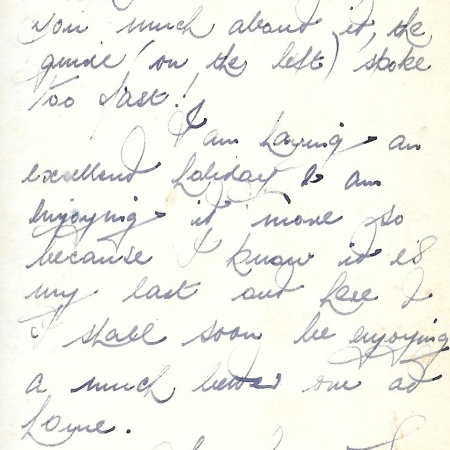 you much about it, the
guide (on the left) spoke
too fast!
I am having an
excellent holiday & am
enjoying it more so
because I know it is
my last out here &
I shall soon be enjoying
a much better one at
home.